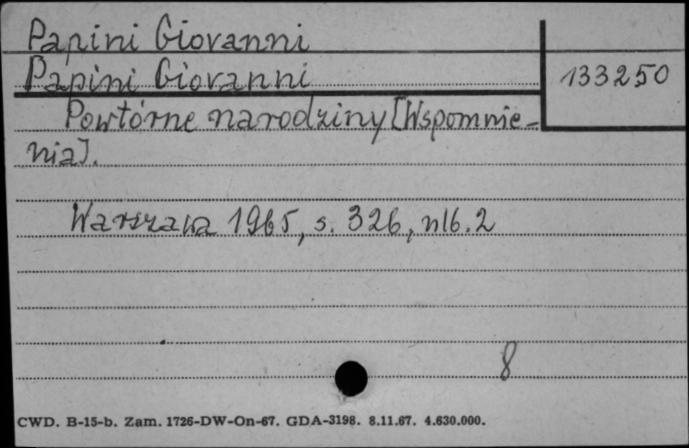 Papini Giovanni
Papini Giovanni
133250
Powtórne narodziny [Wspomnie-
nia].
Warszawa 1965, s. 326, nlb. 2
8
CWD. B-15-b. Zam. 1726-DW-On-67. GDA-3198. 8.11.67. 4.630.000.